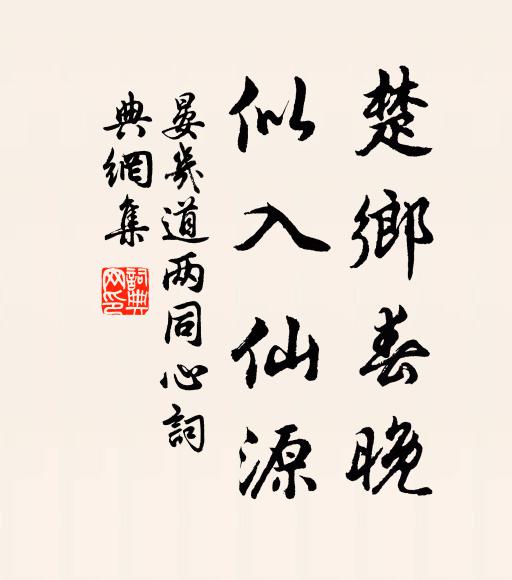 楚鄉春晚
似入仙源
晏幾道两同心詞
典網集
詞典網印